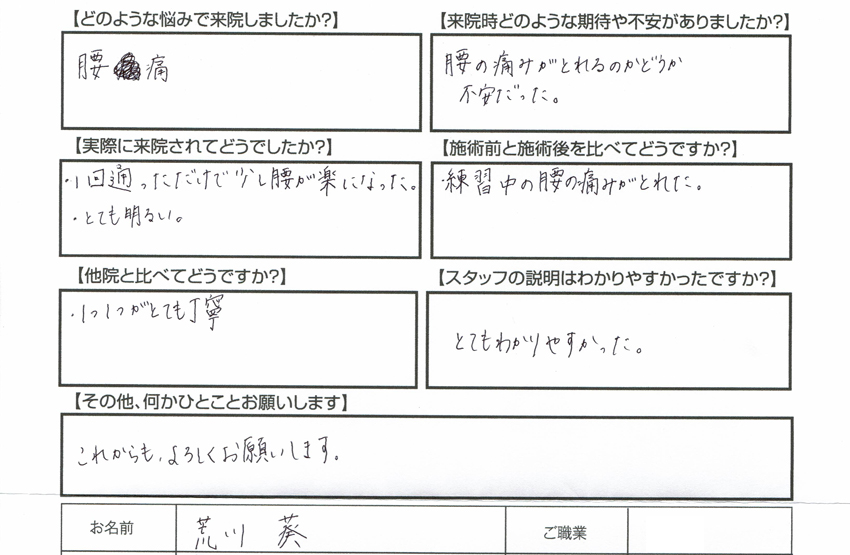 【どのような悩みで来院しましたか?】
腰痛
【来院時どのような期待や不安がありましたか?】
腰の痛みがとれるのかどうか
不安だった。
【実際に来院されてどうでしたか?】
・1回通っただけで少し腰が楽になった。
・とても明るい。
【施術前と施術後を比べてどうですか?】
・練習中の腰の痛みがとれた。
【他院と比べてどうですか?】
・1つ1つがとても丁寧
【スタッフの説明はわかりやすかったですか?】
とてもわかりやすかった。
【その他、何かひとことお願いします】
これからも、よろしくお願いします。
お名前 荒川 葵 ご職業